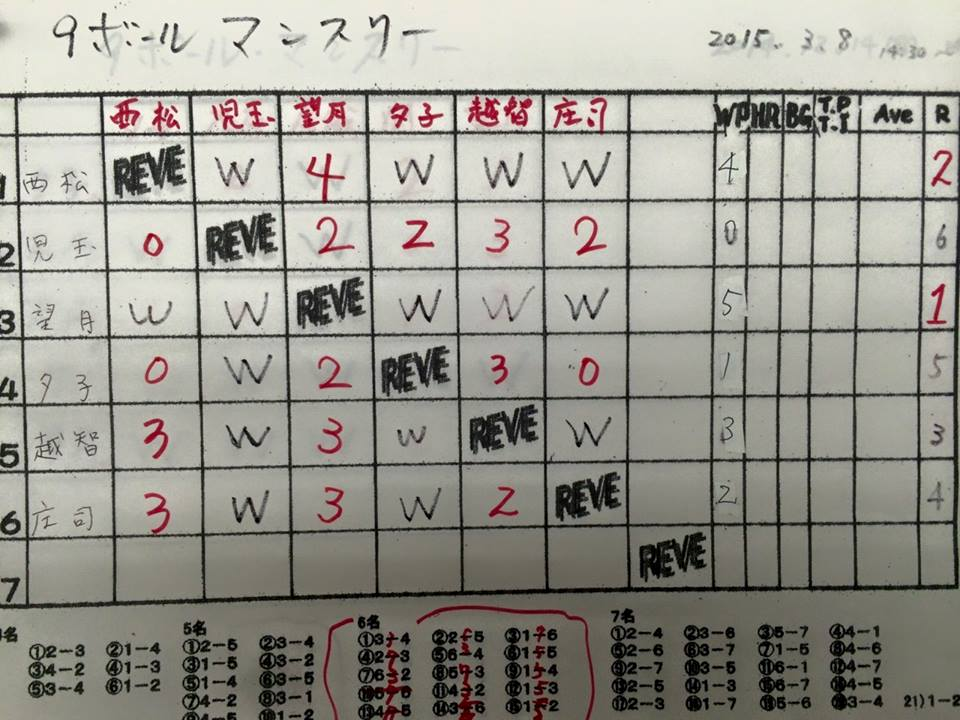 9ボール マンスリー 2015. 3. 8 14:30〜
西松 児玉 望月 夕子 越智 庄司 WP HR BG T.P T.I Ave R
1 西松 REVE W 4 W W W 4 2
2 児玉 0 REVE 2 2 3 2 0 6
3 望月 W W REVE W W W 5 1
4 夕子 0 W 2 REVE 3 0 1 5
5 越智 3 W 3 W REVE W 3 3
6 庄司 3 W 3 W 2 REVE 2 4
7 REVE
5名 6名 7名
①2-3 ②1-4 ①2-5 ②3-4 ①3-4 ②2-5 ③1-6 ①2-4 ②3-6 ③5-7 ④4-1
③4-2 ④1-3 ③1-5 ④3-2 ④2-3 ⑤6-4 ⑥1-5 ⑤2-6 ⑥3-7 ⑦1-5 ⑧4-6
⑤3-4 ⑥1-2 ⑤1-4 ⑥3-5 ⑦6-2 ⑧5-3 ⑨1-4 ⑨2-7 ⑩3-5 ⑪6-1 ⑫4-7
⑦4-2 ⑧3-1 ⑪4-2 ⑫1-3 ⑬2-5 ⑭1-3 ⑮6-7 ⑯4-5
⑨4-5 ⑩1-2 ⑬4-5 ⑭3-6 ⑮1-2 ⑰2-3 ⑱1-7 ⑳3-4 21)1-2